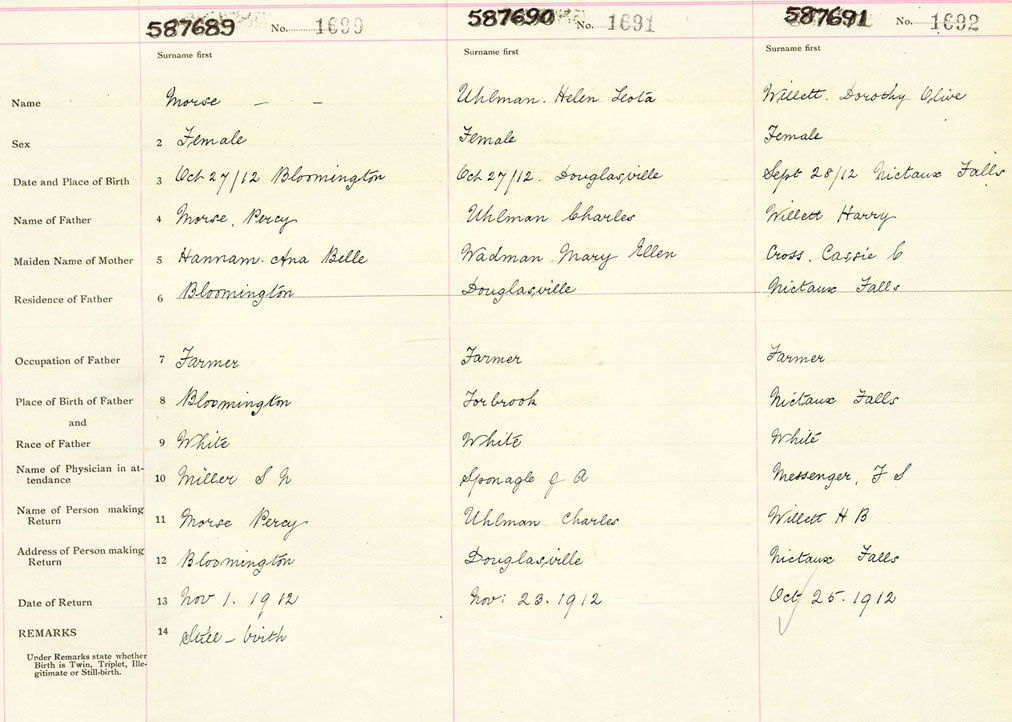 587689 No. 1690 587690 No. 1691 587691 No. 1692
Surname first Surname first Surname first
Name Morse — — Uhlman. Helen Leota Willett. Dorothy Olive
Sex 2 Female Female Female
Date and Place of Birth 3 Oct 27/12 Bloomington Oct 27/12. Douglasville Sept 28/12 Nictaux Falls
Name of Father 4 Morse, Percy Uhlman Charles Willett Harry
Maiden Name of Mother 5 Hannam. Ana Belle Wadman Mary Ellen Cross. Cassie C
Residence of Father 6 Bloomington Douglasville Nictaux Falls
Occupation of Father 7 Farmer Farmer Farmer
Place of Birth of Father 8 Bloomington Torbrook Nictaux Falls
and
Race of Father 9 White White White
Name of Physician in at-
tendance 10 Miller S N Sponagle J A Messenger, F S
Name of Person making
Return 11 Morse Percy Uhlman Charles Willett H B
Address of Person making
Return 12 Bloomington Douglasville Nictaux Falls
Date of Return 13 Nov 1. 1912 Nov: 23. 1912 Oct 25. 1912
REMARKS 14 Still – birth
Under Remarks state whether
Birth is Twin, Triplet, Ille-
gitimate or Still-birth.